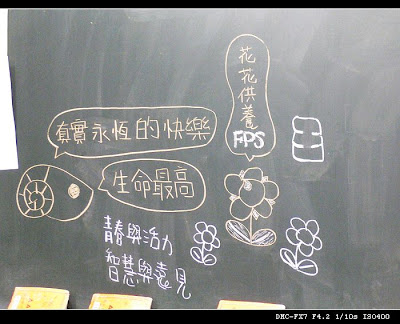 花花供養
FPS
真實永恆的快樂
生命最高
青春與活力
智慧與遠見
DMC-FX7 F4.2 1/10s ISO400